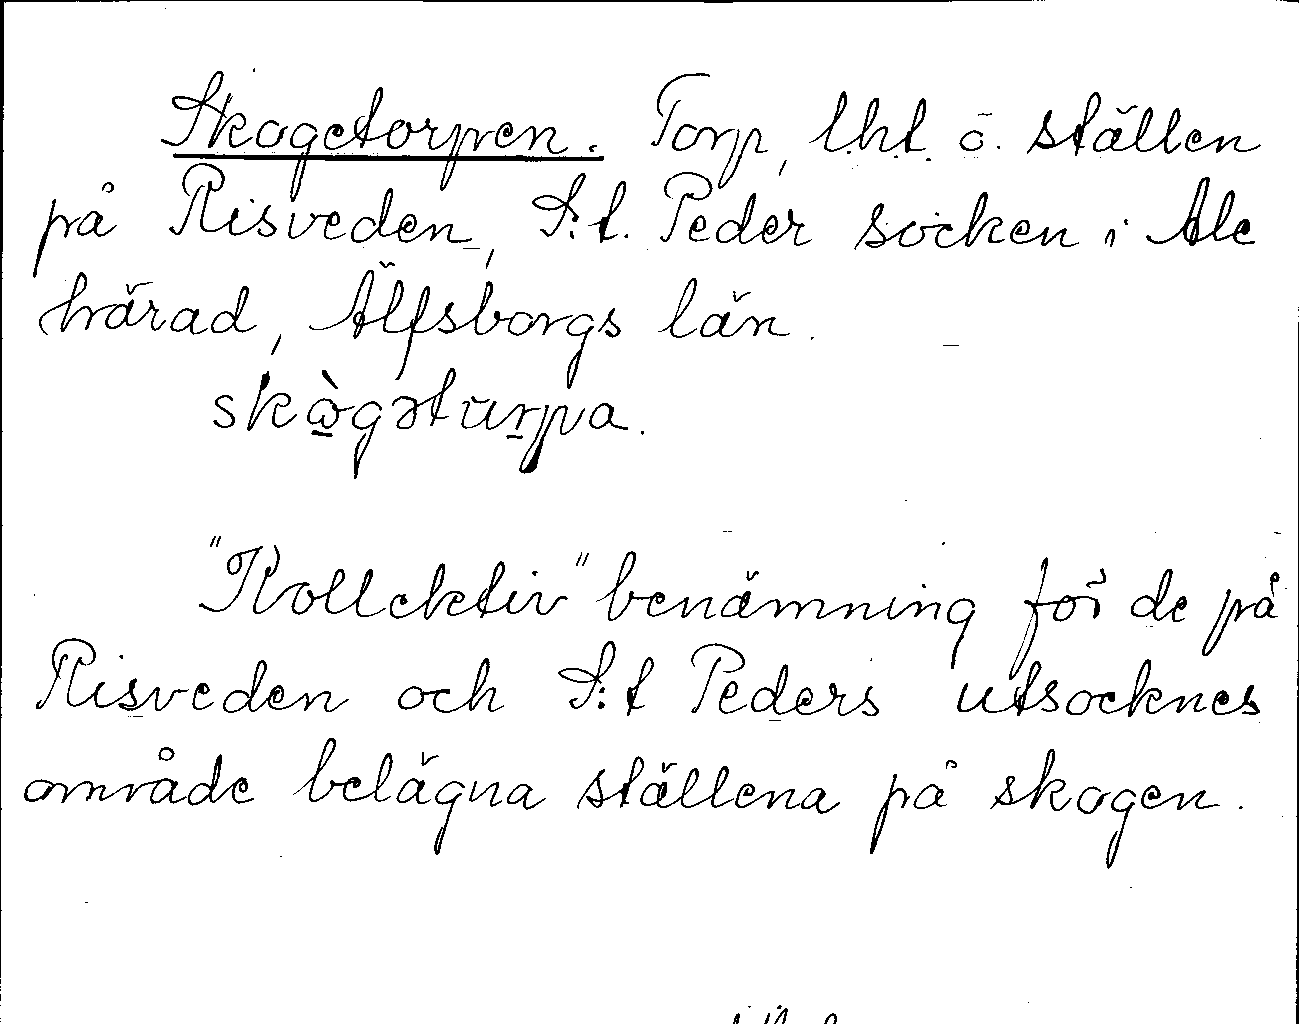 Skogetorpen. Torp, lht. o. ställen
på Risveden, S:t. Peder socken i Ale
härad, Älfsborgs län.
skògəturpa.
"Kollektiv" benämning för de på
Risveden och S:t Peders utsocknes
område belägna ställena på skogen.